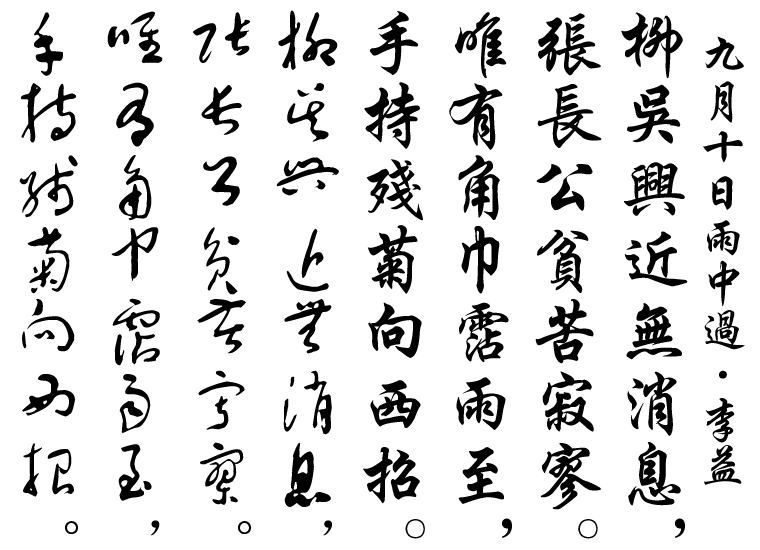 九月十日雨中過・李益
柳吳興近無消息，
張長公貧苦寂寥。
唯有角巾霑雨至，
手持殘菊向西招。
柳吳興近無消息，
張長公貧苦寂寥。
唯有角巾霑雨至，
手持殘菊向西招。